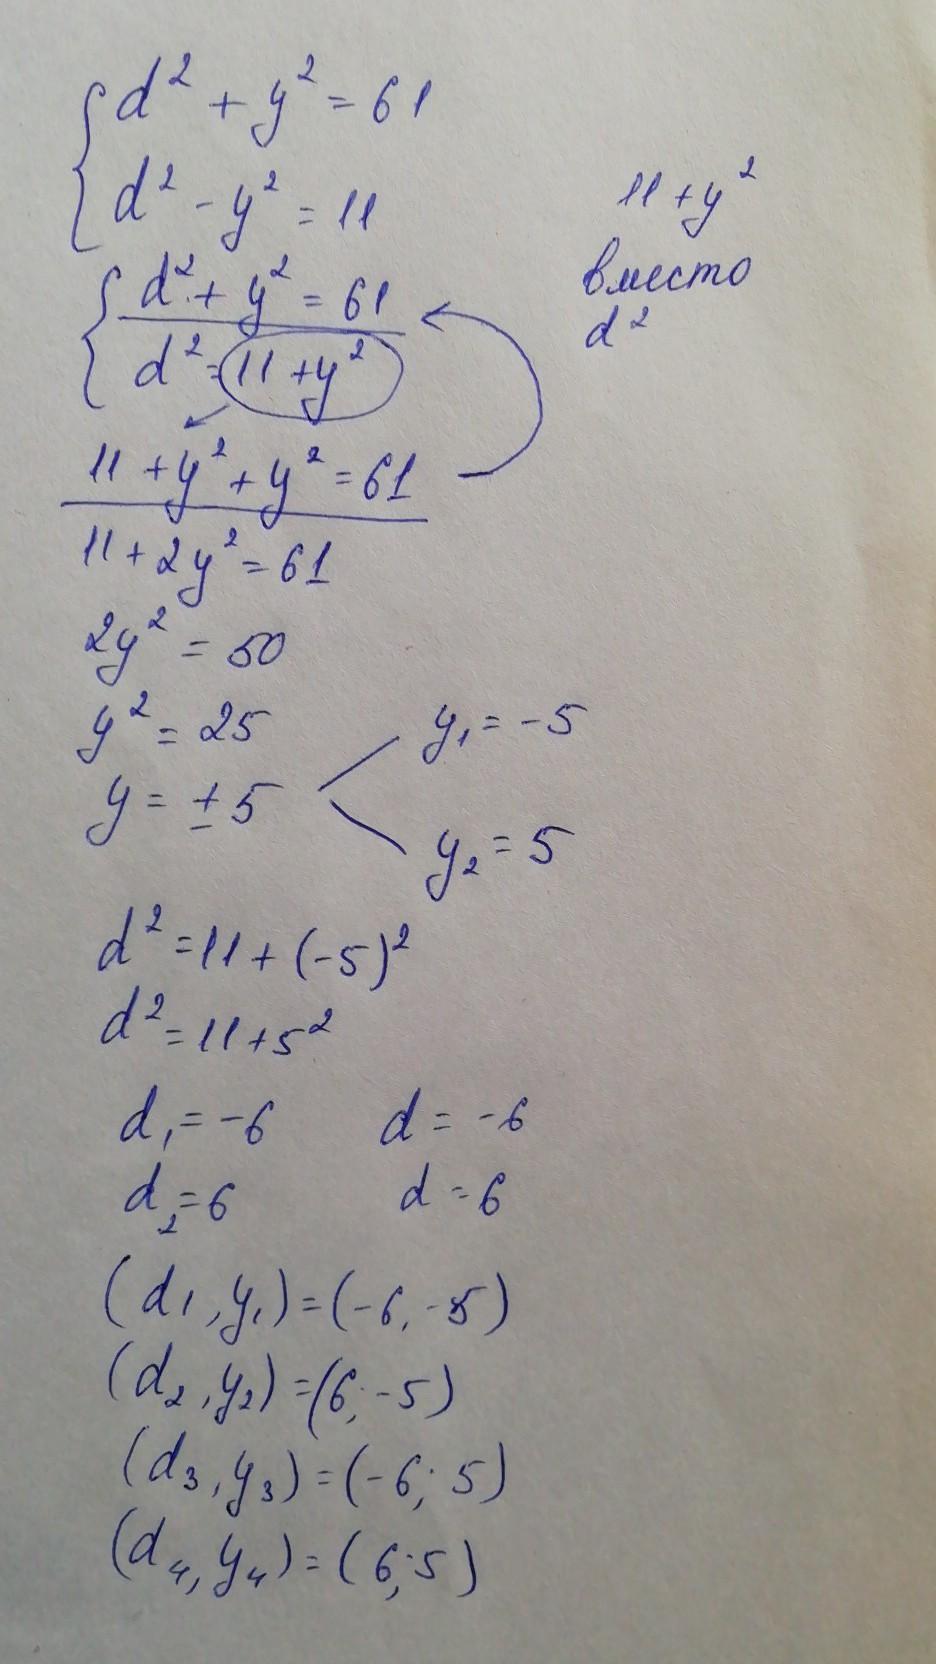 d² + y² = 61
d² - y² = 11
11 + y²
вместо
d²
d² + y² = 61
d² = 11 + y²
11 + y² + y² = 61
11 + 2y² = 61
2y² = 50
y² = 25
y₁ = -5
y = ± 5
y₂ = 5
d² = 11 + (-5)²
d² = 11 + 5²
d₁ = -6 d = -6
d₂ = 6 d = 6
(d₁, y₁) = (-6, -5)
(d₂, y₂) = (6; -5)
(d₃, y₃) = (-6; 5)
(d₄, y₄) = (6; 5)